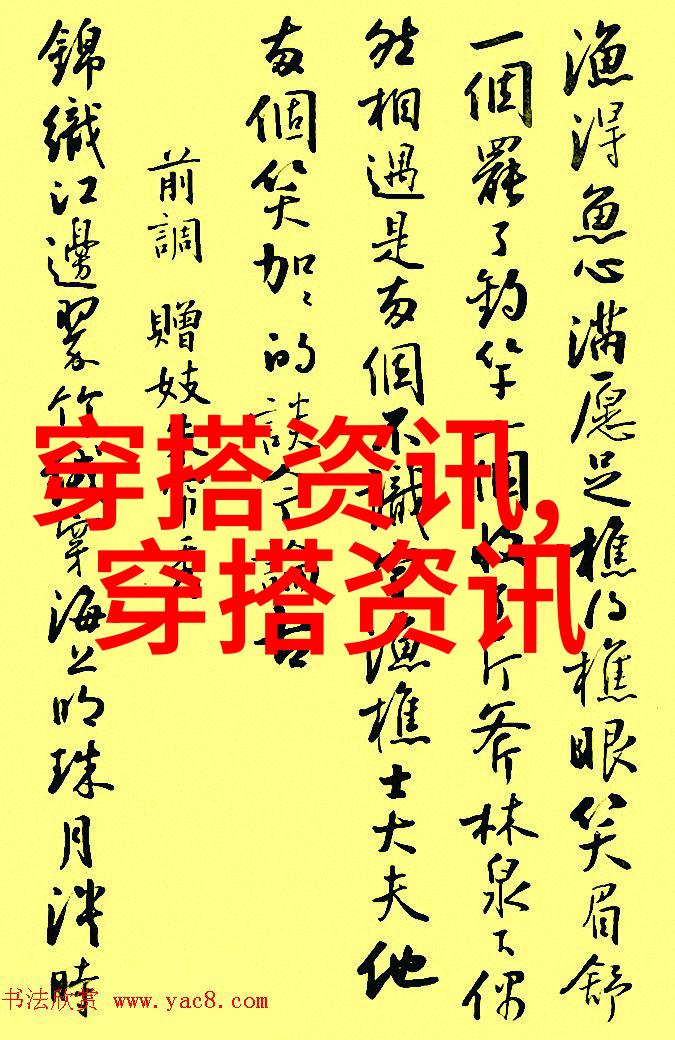 漁得魚心滿愿足樵得樵眼笑眉舒
一個罷了釣竿一個收了斤斧林泉下偶
然相遇是兩個不識字漁樵士大夫他
兩個笑加加的談今論古
前調 贈妓朱帘秀
錦織江邊翠竹絨穿海上明珠月淡時
穿搭资讯,
穿搭资讯
书法欣赏 www.yac8.com